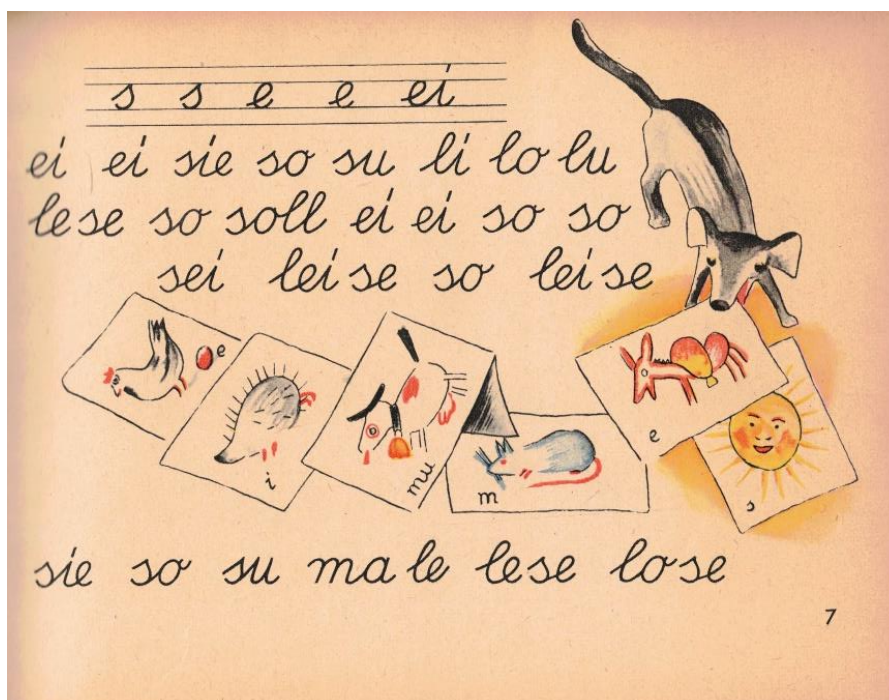 s s e e ei
ei ei sie so su li lo lu
lese so soll ei ei so so
sei leise so leise
e
i
mu
m
e
s
sie so su male lese lose
7